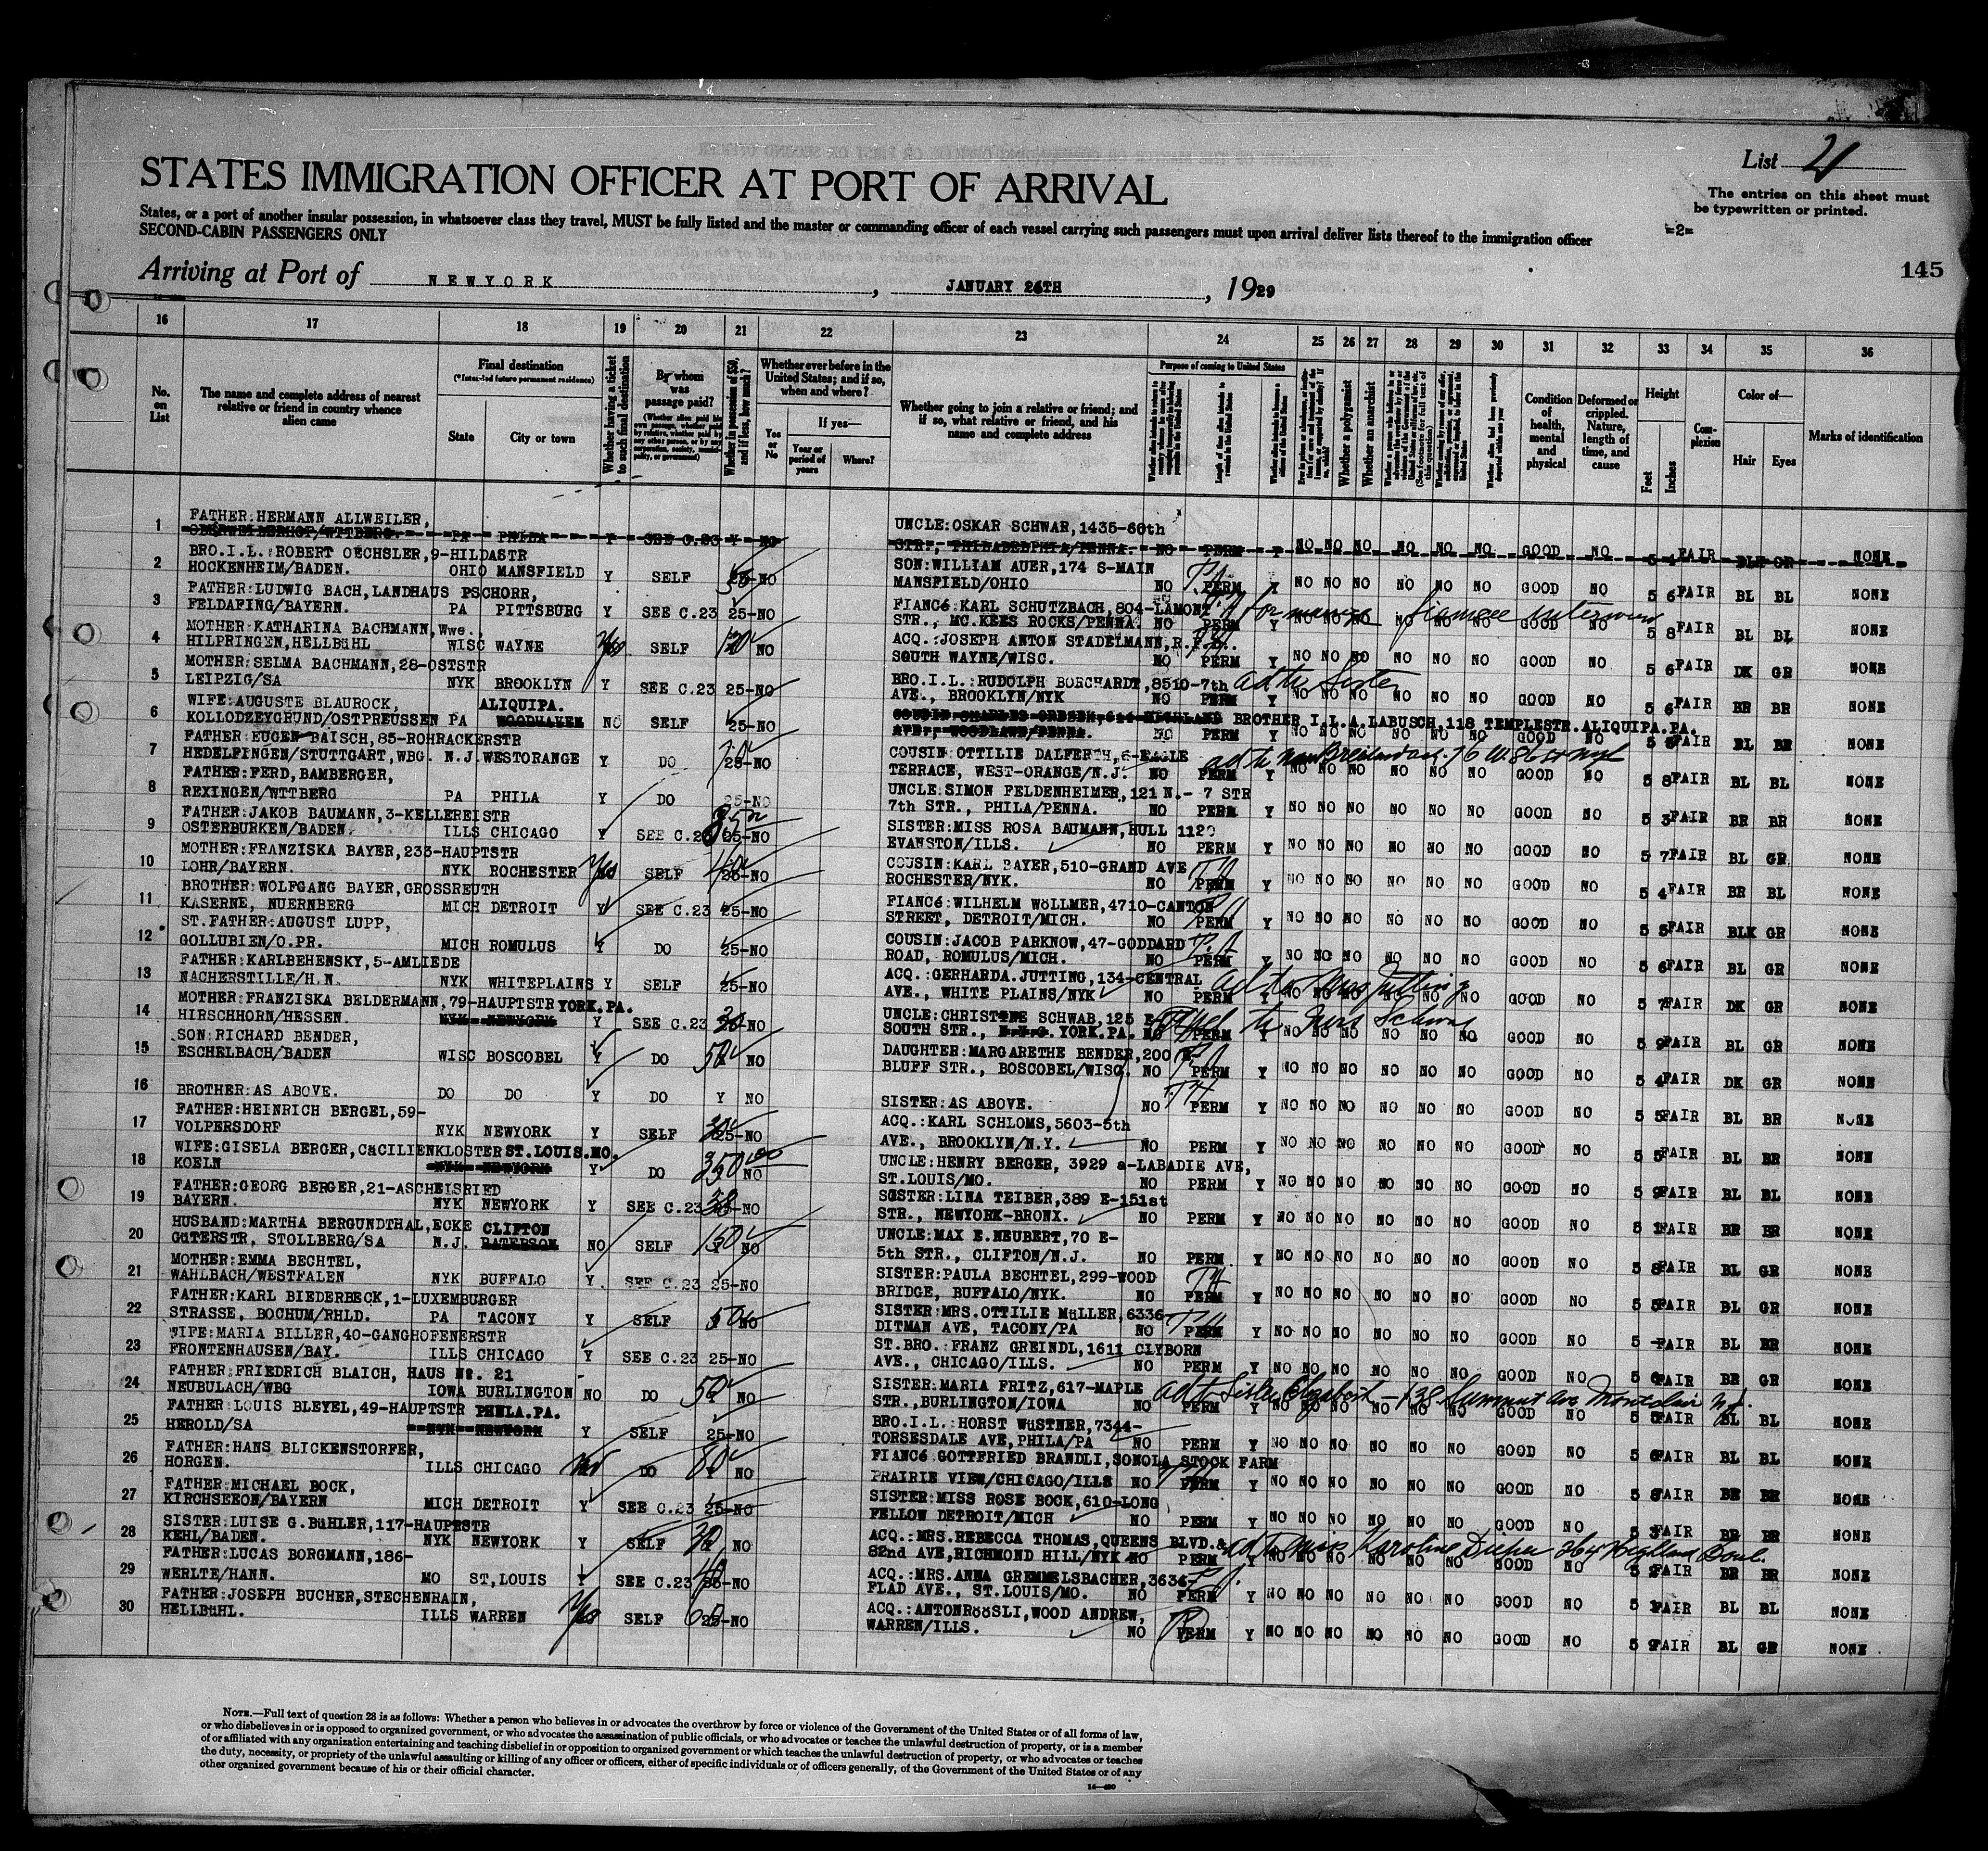 List 21
STATES IMMIGRATION OFFICER AT PORT OF ARRIVAL
The entries on this sheet must
be typewritten or printed.
States, or a port of another insular possession, in whatsoever class they travel, MUST be fully listed and the master or commanding officer of each vessel carrying such passengers must upon arrival deliver lists thereof to the immigration officer
=2=
SECOND-CABIN PASSENGERS ONLY
145
Arriving at Port of NEWYORK, JANUARY 26TH, 1929
16 17 18 19 20 21 22 23 24 25 26 27 28 29 30 31 32 33 34 35 36
No. on List
The name and complete address of nearest relative or friend in country whence alien came
Final destination
(*Intended future permanent residence)
State
City or town
Whether having a ticket to such final destination
By whom was passage paid?
Whether in possession of $50, and if less, how much?
Whether ever before in the United States; and if so, when and where?
Yes or No
If yes—
Year or period of years
Where?
Whether going to join a relative or friend; and if so, what relative or friend, and his name and complete address
Purpose of coming to United States
Whether a polygamist
Whether an anarchist
Condition of health, mental and physical
Deformed or crippled. Nature, length of time, and cause
Height
Feet
Inches
Complexion
Color of—
Hair
Eyes
Marks of identification
1 FATHER:HERMANN ALLWEILER, UNCLE:OSKAR SCHWAR,1435-60th
PA PHILA Y SEE C.23 Y NO STR., PHILADELPHIA/PENNA. NO PERM Y NO NO NO NO NO NO GOOD NO 5 4 FAIR BLK GR NONE
2 BRO.I.L.:ROBERT OECHSLER,9-HILDASTR SON:WILLIAM AUER,174 S-MAIN
HOCKENHEIM/BADEN. OHIO MANSFIELD Y SELF 25-NO MANSFIELD/OHIO NO PERM Y NO NO NO NO NO NO GOOD NO 5 6 FAIR BL BL NONE
3 FATHER:LUDWIG BACH,LANDHAUS PSCHORR, FIANCé:KARL SCHUTZBACH,804-LAMONT
FELDAFING/BAYERN. PA PITTSBURG Y SEE C.23 25-NO STR., MC.KEES ROCKS/PENNA. NO PERM Y NO NO NO NO NO NO GOOD NO 5 8 FAIR BL BL NONE
4 MOTHER:KATHARINA BACHMANN,Wwe., ACQ.:JOSEPH ANTON STADELMANN,R.F.D..
HILPRINGEN,HELLBüHL WISC WAYNE Yes SELF NO SOUTH WAYNE/WISC. NO PERM Y NO NO NO NO NO NO GOOD NO 5 6 FAIR DK GR NONE
5 MOTHER:SELMA BACHMANN,28-OSTSTR BRO.I.L.:RUDOLPH BORCHARDT,8510-7th
LEIPZIG/SA NYK BROOKLYN Y SEE C.23 25-NO AVE., BROOKLYN/NYK NO PERM Y NO NO NO NO NO NO GOOD NO 5 6 FAIR BR BR NONE
6 WIFE:AUGUSTE BLAUROCK, ALIQUIPA. BROTHER I.L.A.LABUSCH,118 TEMPLESTR.ALIQUIPA.PA.
KOLLODZEYGRUND/OSTPREUSSEN PA WOODHAVEN NO SELF 25-NO AVE., WOODLAWN/PENNA. NO PERM Y NO NO NO NO NO NO GOOD NO FAIR BL BR NONE
7 FATHER:EUGEN BAISCH,85-ROHRACKERSTR COUSIN:OTTILIE DALFERTH,6-EAGLE
HEDELFINGEN/STUTTGART,WBG. N.J.WESTORANGE Y DO 25-NO TERRACE, WEST-ORANGE/N.J. NO PERM Y NO NO NO NO NO NO GOOD NO 5 8 FAIR BL BL NONE
8 FATHER:FERD,BAMBERGER, UNCLE:SIMON FELDENHEIMER,121 N.- 7 STR
REXINGEN/WTTBERG PA PHILA Y DO 25-NO 7th STR., PHILA/PENNA. NO PERM Y NO NO NO NO NO NO GOOD NO 5 3 FAIR BR BR NONE
9 FATHER:JAKOB BAUMANN,3-KELLEREISTR SISTER:MISS ROSA BAUMANN,HULL 1120
OSTERBURKEN/BADEN. ILLS CHICAGO Y SEE C.23 25-NO EVANSTON/ILLS. NO PERM Y NO NO NO NO NO NO GOOD NO 5 7 FAIR BL GR NONE
10 MOTHER:FRANZISKA BAYER,233-HAUPTSTR COUSIN:KARL BAYER,510-GRAND AVE
LOHR/BAYERN. NYK ROCHESTER Yes SELF 25-NO ROCHESTER/NYK. NO PERM Y NO NO NO NO NO NO GOOD NO 5 4 FAIR BR BL NONE
11 BROTHER:WOLFGANG BAYER,GROSSREUTH FIANCé:WILHELM WöLLMER,4710-CANTON
KASERNE, NUERNBERG MICH DETROIT Y SEE C.23 25-NO STREET, DETROIT/MICH. NO PERM Y NO NO NO NO NO NO GOOD NO 5 5 FAIR BLK GR NONE
12 ST.FATHER:AUGUST LUPP, COUSIN:JACOB PARKNOW,47-GODDARD
GOLLUBIEN/O.PR. MICH ROMULUS Y DO 25-NO ROAD, ROMULUS/MICH. NO PERM Y NO NO NO NO NO NO GOOD NO 5 6 FAIR BL GR NONE
13 FATHER:KARLBEHENSKY,5-AMLIEDE ACQ.:GERHARDA.JUTTING,134-CENTRAL
NACHERSTILLE/H.N. NYK WHITEPLAINS Y SELF 25-NO AVE., WHITE PLAINS/NYK NO PERM Y NO NO NO NO NO NO GOOD NO 5 7 FAIR DK GR NONE
14 MOTHER:FRANZISKA BELDERMANN,79-HAUPTSTR YORK.PA. UNCLE:CHRISTINE SCHWAB,125 E-
HIRSCHHORN/HESSEN. NYK NEWYORK Y SEE C.23 NO SOUTH STR., YORK.PA. NO PERM Y NO NO NO NO NO NO GOOD NO 5 9 FAIR BL GR NONE
15 SON:RICHARD BENDER, DAUGHTER:MARGARETHE BENDER,200 E.
ESCHELBACH/BADEN WISC BOSCOBEL Y DO 50 NO BLUFF STR., BOSCOBEL/WISC. NO PERM Y NO NO NO NO NO NO GOOD NO 5 4 FAIR DK GR NONE
16 BROTHER:AS ABOVE. DO DO Y DO Y NO SISTER:AS ABOVE. NO PERM Y NO NO NO NO NO NO GOOD NO 5 5 FAIR BL BR NONE
17 FATHER:HEINRICH BERGEL,59- ACQ.:KARL SCHLOMS,5603-5th
VOLPERSDORF NYK NEWYORK Y SELF 25-NO AVE., BROOKLYN/N.Y. NO PERM Y NO NO NO NO NO NO GOOD NO 5 5 FAIR BL BR NONE
18 WIFE:GISELA BERGER,CäCILIENKLOSTER ST.LOUIS.MO. UNCLE:HENRY BERGER, 3929 a-LABADIE AVE,
KOELN NYK NEWYORK Y DO 350 NO ST.LOUIS/MO. NO PERM Y NO NO NO NO NO NO GOOD NO 5 9 FAIR BL BL NONE
19 FATHER:GEORG BERGER,21-ASCHEISRIED SISTER:LINA TEIBER,389 E-151st
BAYERN. NYK NEWYORK Y SEE C.23 NO STR., NEWYORK-BRONX. NO PERM Y NO NO NO NO NO NO GOOD NO 5 1 FAIR BR BR NONE
20 HUSBAND:MARTHA BERGUNDTHAL,ECKE CLIFTON UNCLE:MAX E.NEUBERT,70 E-
GüTERSTR, STOLLBERG/SA N.J. PATERSON NO SELF 150 NO 5th STR., CLIFTON/N.J. NO PERM Y NO NO NO NO NO NO GOOD NO 5 8 FAIR BL GR NONE
21 MOTHER:EMMA BECHTEL, SISTER:PAULA BECHTEL,299-WOOD
WAHLBACH/WESTFALEN NYK BUFFALO Y SEE C.23 25-NO BRIDGE, BUFFALO/NYK. NO PERM Y NO NO NO NO NO NO GOOD NO 5 5 FAIR BL GR NONE
22 FATHER:KARL BIEDERBECK,1-LUXEMBURGER SISTER:MRS.OTTILIE MüLLER,6336-
STRASSE, BOCHUM/RHLD. PA TACONY Y SELF 50 NO DITMAN AVE, TACONY/PA NO PERM Y NO NO NO NO NO NO GOOD NO 5 - FAIR BL BR NONE
23 WIFE:MARIA BILLER,40-GANGHOFENERSTR ST.BRO.:FRANZ GREINDL,1611 CLYBORN
FRONTENHAUSEN/BAY. ILLS CHICAGO Y SEE C.23 25-NO AVE., CHICAGO/ILLS. NO PERM Y NO NO NO NO NO NO GOOD NO 5 6 FAIR BR GR NONE
24 FATHER:FRIEDRICH BLAICH, HAUS Nr. 21 SISTER:MARIA FRITZ,617-MAPLE
NEUBULACH/WBG IOWA BURLINGTON NO DO 50 NO STR.,BURLINGTON/IOWA NO PERM Y NO NO NO NO NO NO GOOD NO 5 5 FAIR BL BL NONE
25 FATHER:LOUIS BLEYEL,49-HAUPTSTR PHILA.PA. BRO.I.L.:HORST WüSTNER,7344-
HEROLD/SA NYK NEWYORK Y SELF 25-NO TORSESDALE AVE,PHILA/PA NO PERM Y NO NO NO NO NO NO GOOD NO 5 6 FAIR BL BL NONE
26 FATHER:HANS BLICKENSTORFER, FIANCé GOTTFRIED BRANDLI,SONOLA STOCK FARM
HORGEN. ILLS CHICAGO Yes DO 80 NO PRAIRIE VIEW/CHICAGO/ILLS NO PERM Y NO NO NO NO NO NO GOOD NO 5 8 FAIR BR BR NONE
27 FATHER:MICHAEL BOCK, SISTER:MISS ROSE BOCK,610-LONG
KIRCHSEEON/BAYERN MICH DETROIT Y SEE C.23 25-NO FELLOW DETROIT/MICH NO PERM Y NO NO NO NO NO NO GOOD NO 5 3 FAIR BR BR NONE
28 SISTER:LUISE G.BüHLER,117-HAUPTSTR ACQ.:MRS.REBECCA THOMAS,QUEENS BLVD.&
KEHL/BADEN. NYK NEWYORK Y SELF 30 NO 82nd AVE,RICHMOND HILL/NYK NO PERM Y NO NO NO NO NO NO GOOD NO 5 2 FAIR BR BR NONE
29 FATHER:LUCAS BORGMANN,186- ACQ.:MRS.ANNA GREMMELSBACHER,3634-
WERLTE/HANN. MO ST,LOUIS Y SEE C.23 NO FLAD AVE., ST.LOUIS/MO. NO PERM Y NO NO NO NO NO NO GOOD NO 5 1 FAIR BL BL NONE
30 FATHER:JOSEPH BUCHER,STECHENRAIN, ACQ.:ANTONRöSLI,WOOD ANDREW,
HELLBüHL. ILLS WARREN Yes SELF 25-NO WARREN/ILLS. NO PERM Y NO NO NO NO NO NO GOOD NO 5 9 FAIR BL GR NONE
NOTE.—Full text of question 28 is as follows: Whether a person who believes in or advocates the overthrow by force or violence of the Government of the United States or of all forms of law,
or who disbelieves in or is opposed to organized government, or who advocates the assassination of public officials, or who advocates or teaches the unlawful destruction of property, or is a member
of or affiliated with any organization entertaining and teaching disbelief in or opposition to organized government or which teaches the unlawful destruction of property, or who advocates or teaches
the duty, necessity, or propriety of the unlawful assaulting or killing of any officer or officers, either of specific individuals or of officers generally, of the Government of the United States or of any
other organized government because of his or their official character.